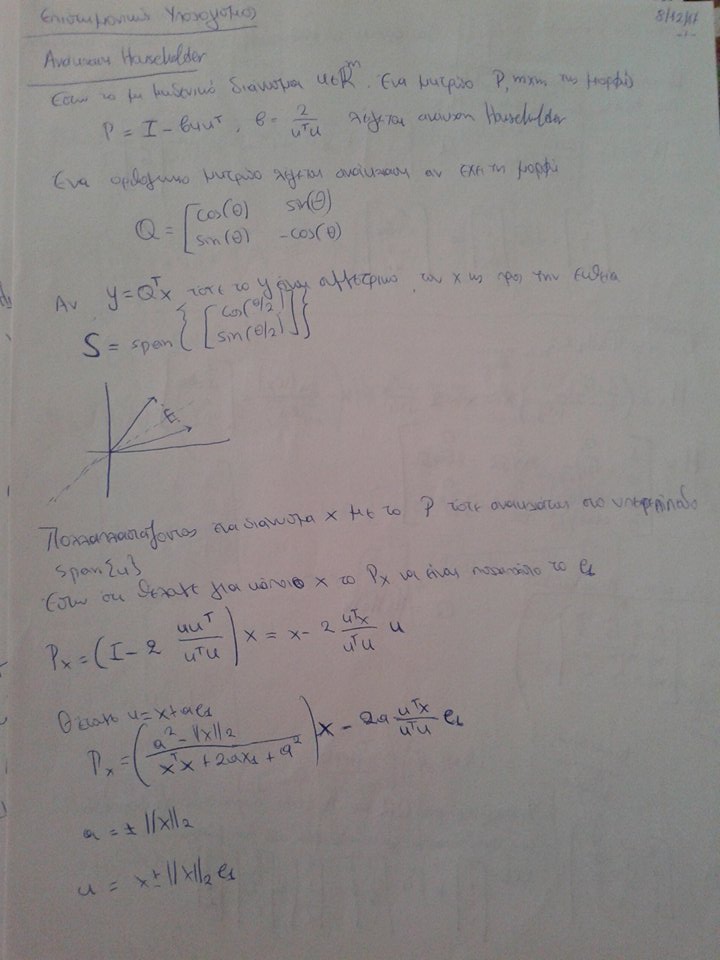 Επιστημονικός Υπολογισμός
8/12/17
-1-
Ανάκλαση Householder
Έστω το μη μηδενικό διάνυσμα u∈ℝᵐ. Ένα μητρώο P, mxm της μορφής
P = I - βuuᵀ, β = 2/uᵀu λέγεται ανάκλαση Householder
Ένα ορθογώνιο μητρώο λέγεται ανάκλαση αν έχει τη μορφή
Q = [cos(θ) sin(θ)
sin(θ) -cos(θ)
Αν y = Qᵀx τότε το y είναι συμμετρικό του x ως προς την ευθεία
S = span { [cos(θ/2)
sin(θ/2)] }
Πολλαπλασιάζοντας ένα διάνυσμα x με το P τότε ανακλάται στο υπερεπίπεδο
span{u}
Έστω ότι θέλαμε για κάποιο x το Px να είναι πολλαπλάσιο το e₁
Px = (I - 2 uuᵀ/uᵀu) x = x - 2 uᵀx/uᵀu u
Θέτω u = x + αe₁
Px = (α² - ||x||₂ / xᵀx + 2αx₁ + α²) x - 2α uᵀx/uᵀu e₁
α = ± ||x||₂
u = x ± ||x||₂ e₁